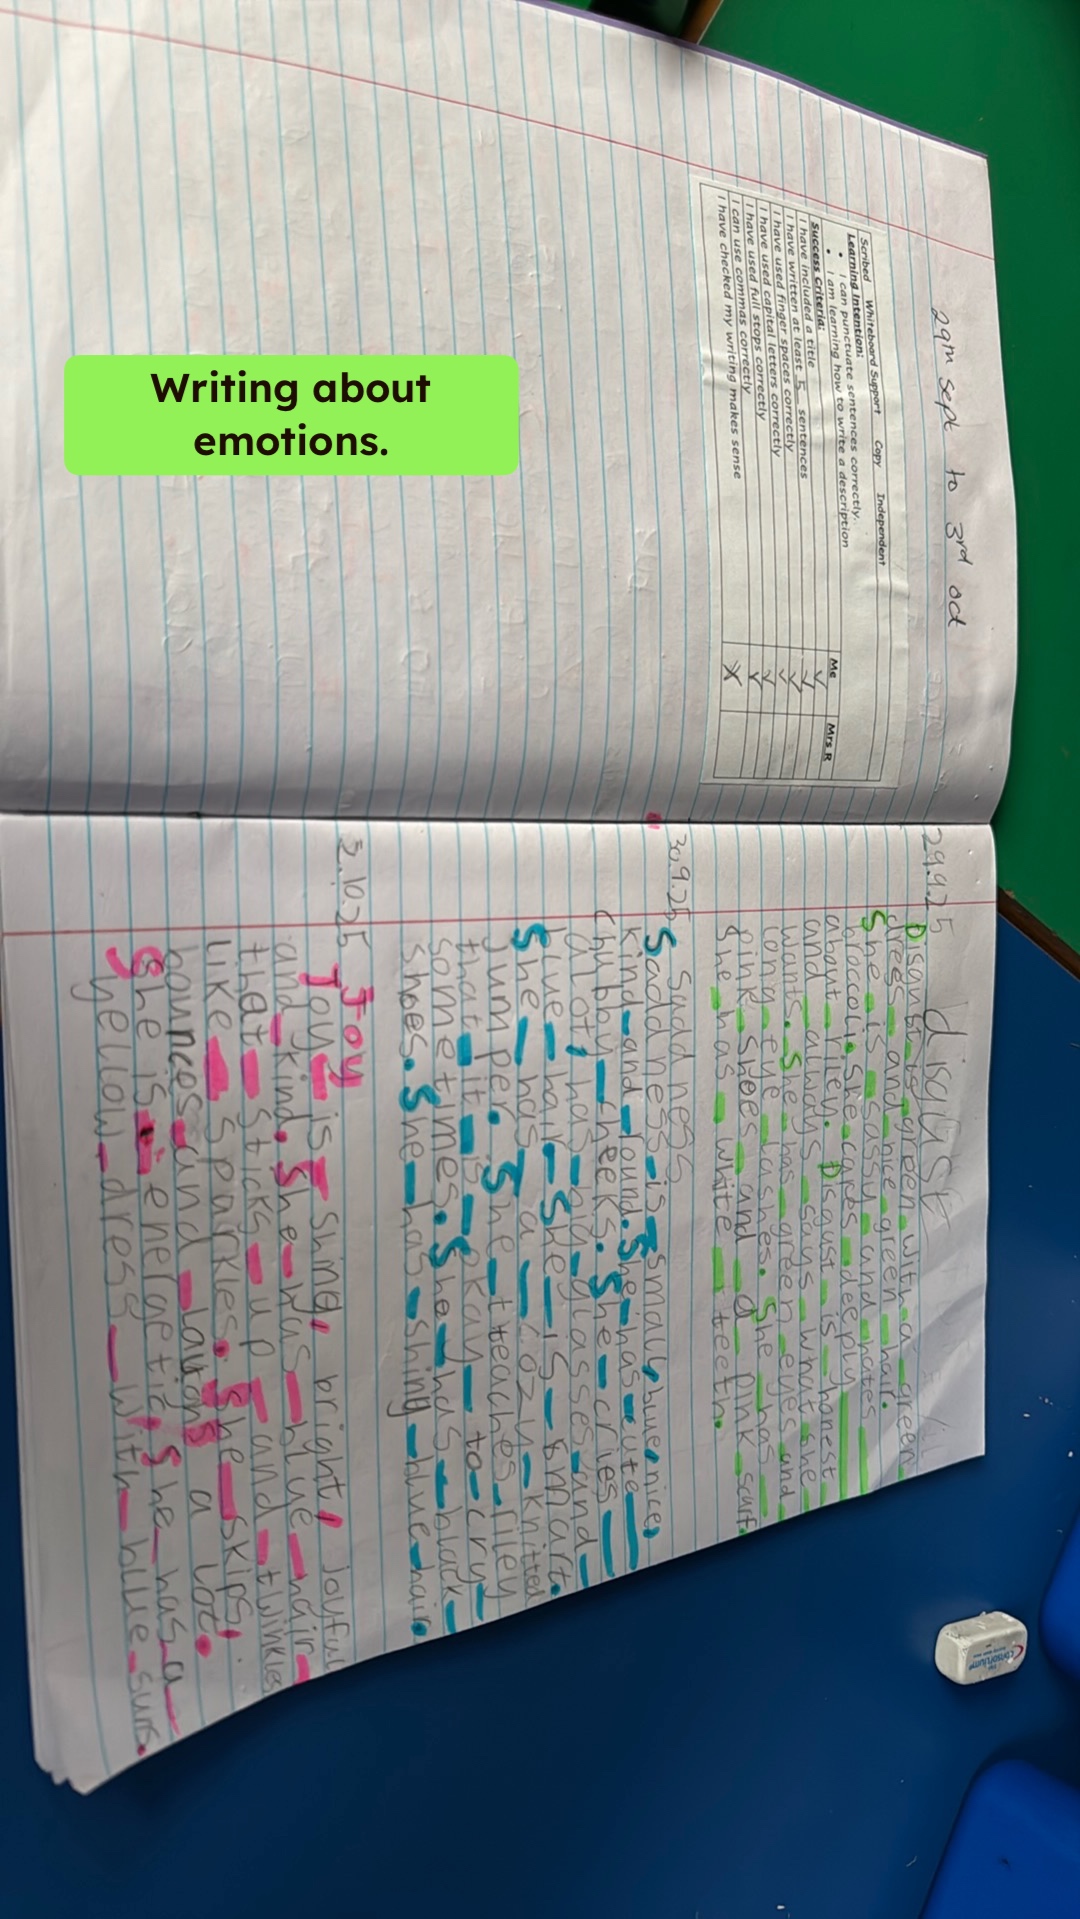 Writing about
emotions.
29th sept to 3rd oct
Scribed Whiteboard Support Copy Independent
Learning Intention:
• I can punctuate sentences correctly.
• I am learning how to write a description
Success Criteria: Me Mrs R
I have included a title
I have written at least 5 sentences
I have used finger spaces correctly
I have used capital letters correctly
I have used full stops correctly
I can use commas correctly
I have checked my writing makes sense
29.9.25 disgust
Disgust is green with a green
dress and nice green hair.
She is sassy and hates
broccoli. she cares deeply
about riley. Disgust is honest
and always says what she
wants. She has green eyes and
long eye lashes. She has
pink shoes and a pink scarf.
She has white teeth.
30.9.25 Sadd ness
Sadd ness is small, blue, nice,
kind and round. She has cute
chubby cheeks. She cries
alot, has big glasses and
blue hair. She is smart.
She has a cozy knitted
jumper. She teaches riley
that it is okay to cry
sometimes. She has black
shoes. She has shing blue hair.
2.10.25 Joy
Joy is shing, bright, joyful
and kind. She has blue hair
that sticks up and twinkles
like sparkles. She skips,
bounces and laughs a lot.
She is energetic. She has a
yellow dress with blue suns.
Consortium